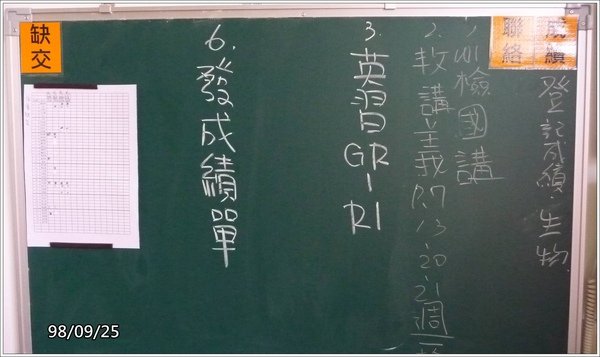 成績
登記成績:生物
聯絡
檢國講
2. 教講義P.7.13.20.21週一
3. 英習GR-R1
6. 發成績單
缺交
98/09/25